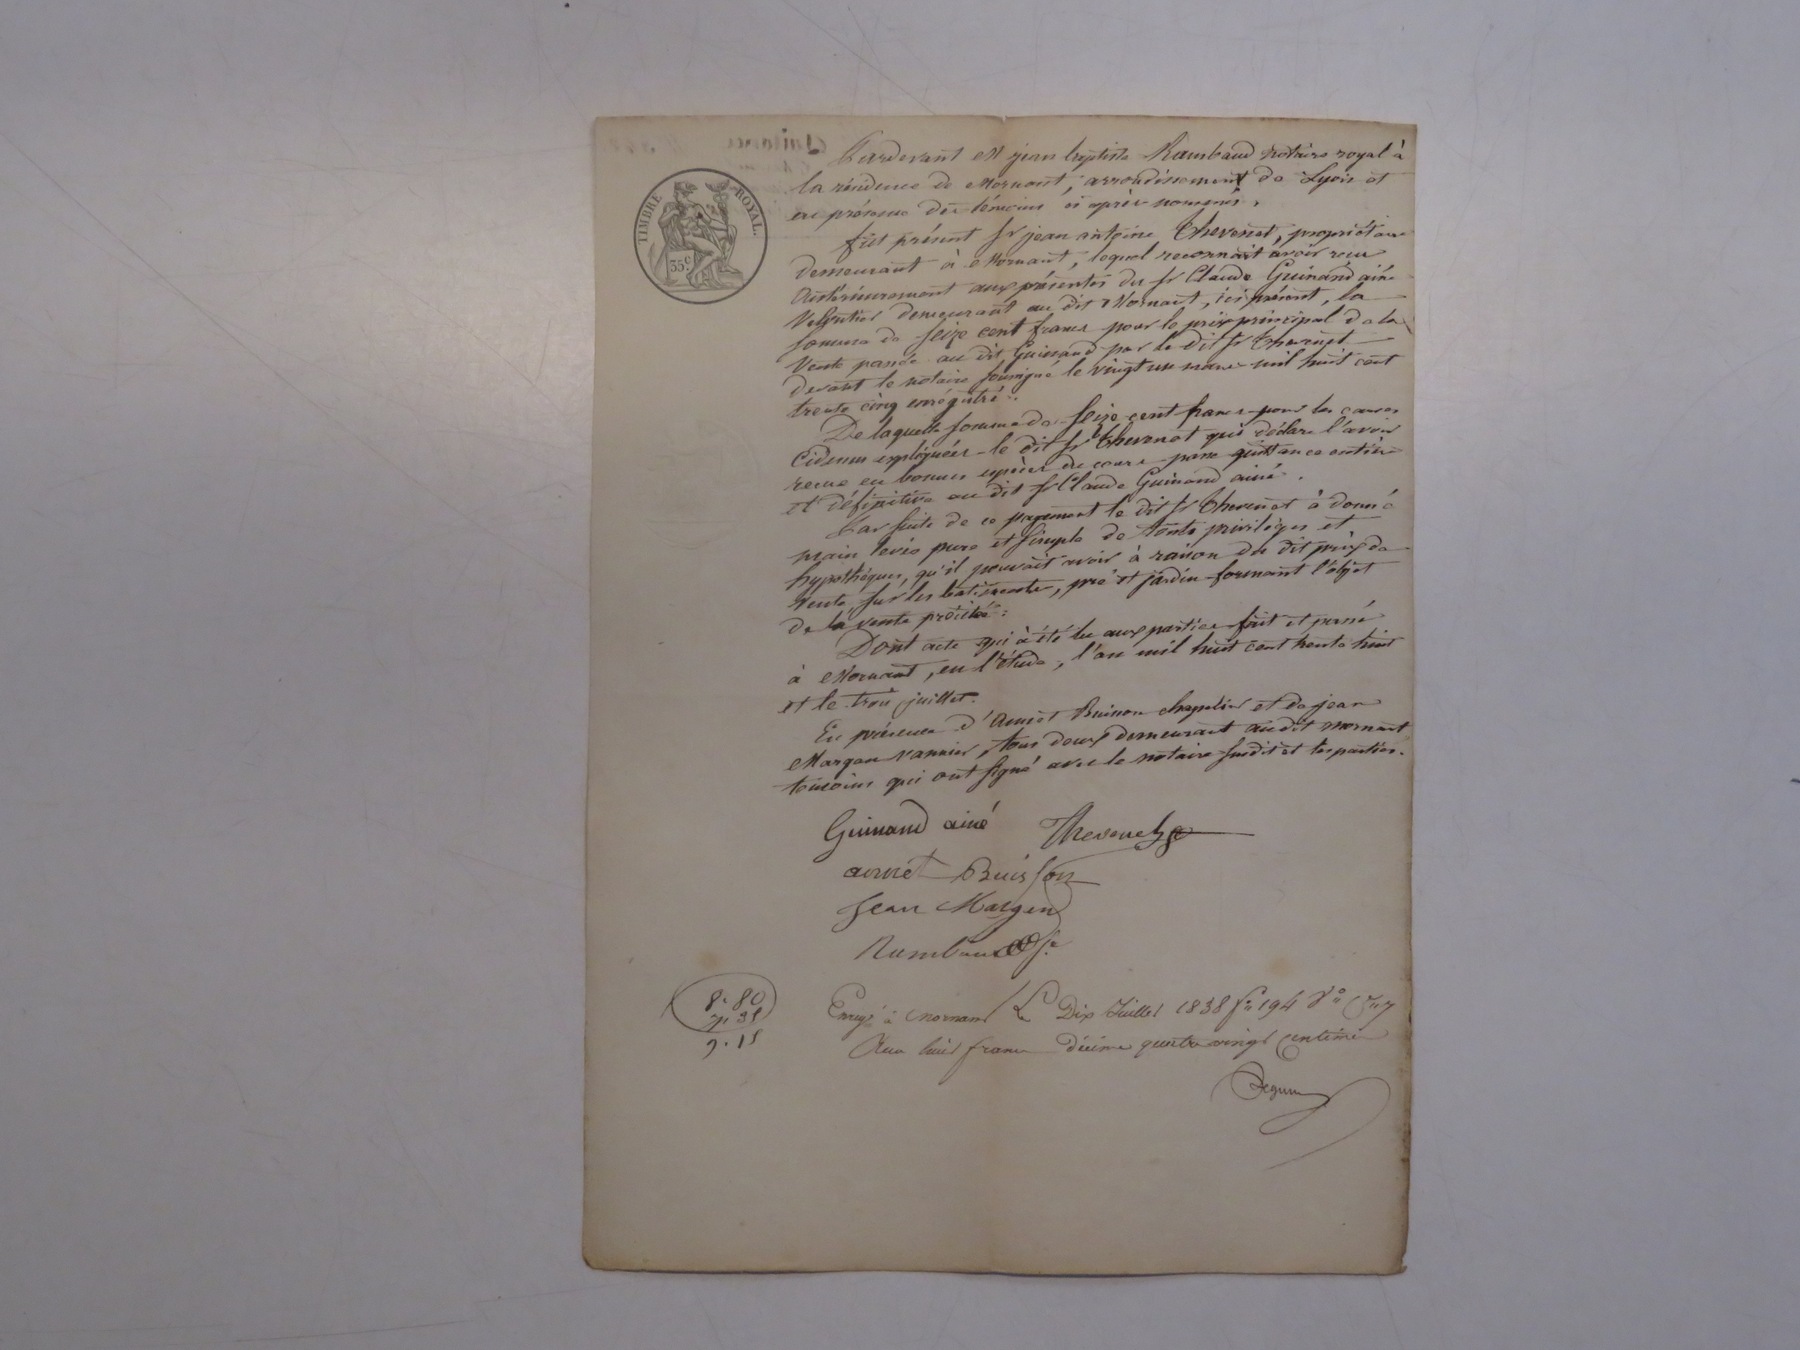 TIMBRE ROYAL.
35c
Pardevant Me jean baptiste Rambaud notaire royal à
la résidence de Mornant, arrondissement de Lyon et
en présence des témoins ci après nommés.
fut présent Sr jean antoine Thevenet, propriétaire
demeurant à Mornant, lequel reconnait avoir reçu
antérieurement aux présentes du Sr Claude Guinand ainé
demeurant au dit Mornant, ici présent, la
somme de seize cent francs pour le prix principal de la
vente passée au dit Guinand par le dit Sr Thevenet
devant le notaire soussigné le vingt un mars mil huit cent
trente cinq enregistré.
De laquelle somme de seize cent francs pour les causes
cidessus expliquées le dit Sr Thevenet qui déclare l'avoir
reçue en bonnes espèces du cours passe quittance entière
et définitive au dit Sr Claude Guinand ainé.
Par suite de ce payement le dit Sr Thevenet à donné
main levée pure et simple de touts privilèges et
hypothèques, qu'il pouvait avoir à raison du dit prix de
vente, sur les batiments, pré et jardin formant l'objet
de la vente précitée :
Dont acte qui à été lu aux parties fait et passé
à Mornant, en l'étude, l'an mil huit cent trente huit
et le trois juillet.
En présence d'Annet Buisson chapelier et de jean
Margand vannier, tous deux demeurant audit mornant,
témoins qui ont signé avec le notaire susdit et les parties.
Guinand ainé Thevenet
annet Buisson
Jean Margand
Rambaud
8. 80
35
9. 15
Enregé à Mornant Le Dix Juillet 1838 fo 194 Vo Cse 7
Reçu huit francs décime quatre vingt Centimes